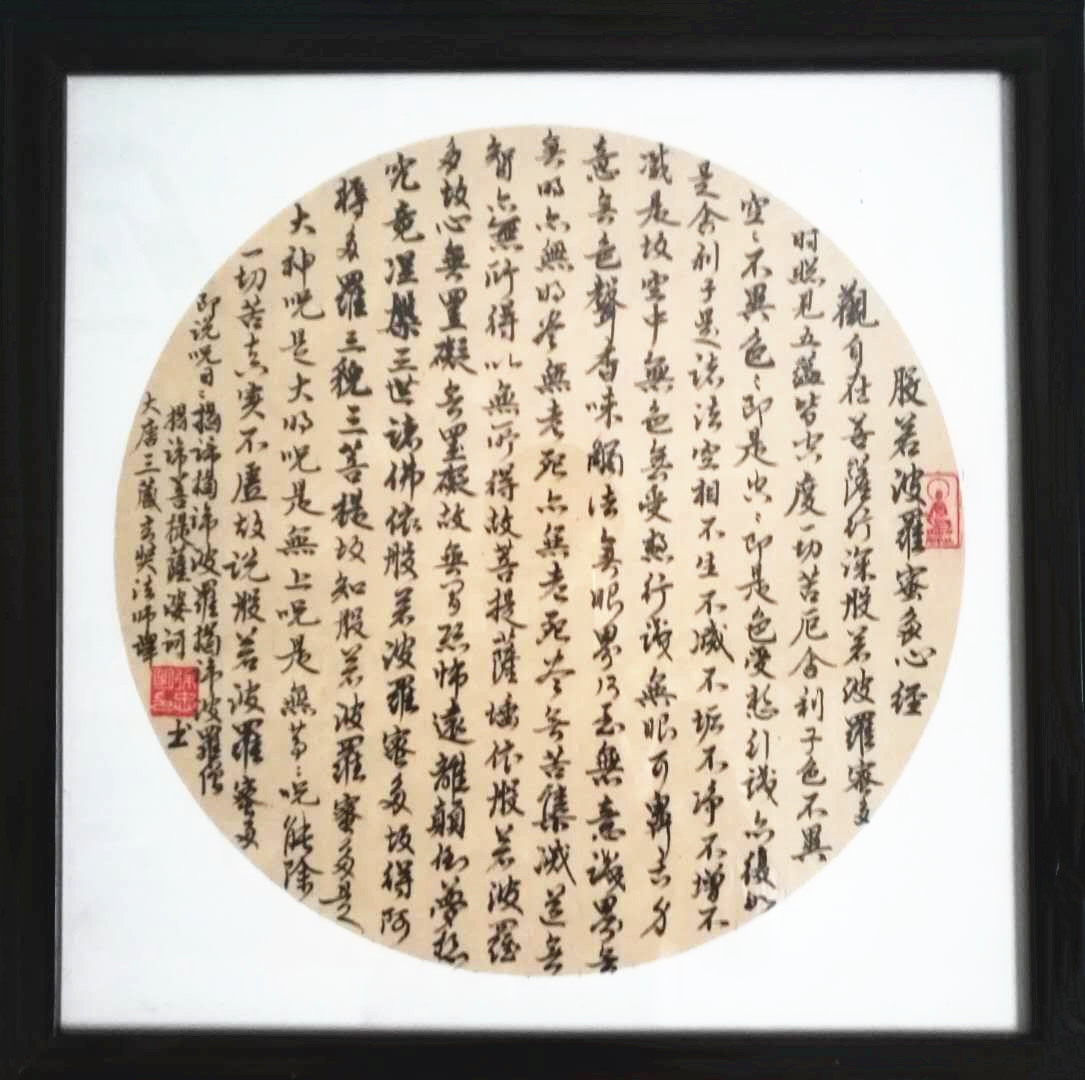 般若波羅蜜多心経
觀自在菩薩行深般若波羅蜜多
时照见五蕴皆空度一切苦厄舍利子色不異
空〻不異色〻即是空〻即是色受想行識亦復如
是舍利子是诸法空相不生不滅不垢不净不增不
滅是故空中無色無受想行識無眼耳鼻舌身
意無色聲香味觸法無眼界乃至無意識界無
無明亦無明尽無老死亦無老死尽無苦集滅道無
智亦無所得以無所得故菩提薩埵依般若波羅
多故心無罣礙無罣礙故無有恐怖遠離顛倒夢想
究竟涅槃三世诸佛依般若波羅蜜多故得阿
耨多羅三藐三菩提故知般若波羅蜜多是
大神呪是大明呪是無上呪是無等〻呪能除
一切苦真实不虚故说般若波羅蜜多
即说呪曰〻揭谛揭谛波羅揭谛波羅僧
揭谛菩提薩婆訶
大唐三藏玄奘法师譯
书